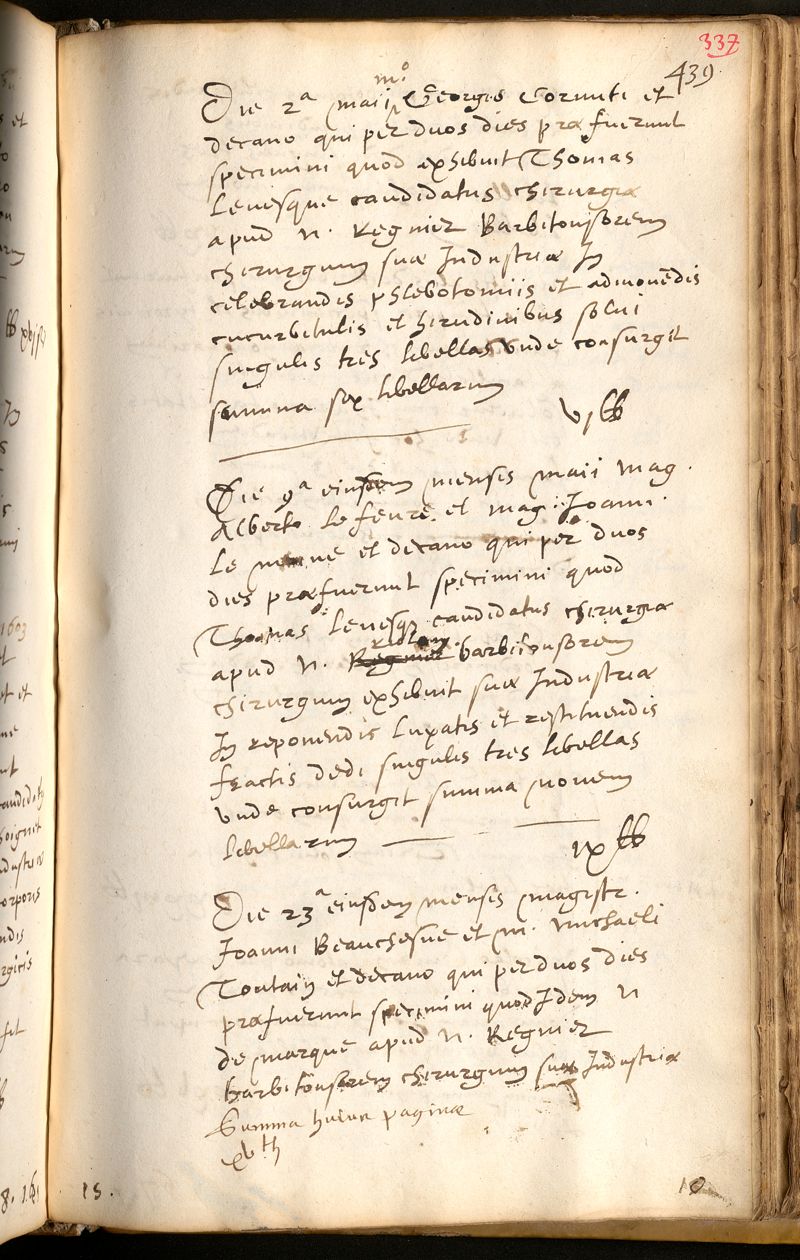 337
439.
mo
Die 2a maii Georgio Cornuti et
decano qui per duos dies præfuerunt
specimini quod exhibuit Thomas
Levesque candidatus chirurgiæ
apud N. Regnier Barbitonsorem
chirurgum suæ Industriæ In
celebrandis phlebotomiis et admovēdis
cucurbitulis et hirudinibus solui
singulis tres libellas unde consurgit
summa sex libellarum
vj lb
Die 9a eiusdem mensis maii mag.
Alberto le feure et mag. Joanni
Le et decano qui per duos
dies præfuerunt specimini quod
Thomas levesq candidatus chirurgiæ
apud N. Regnier barbitonsorem
chirurgum exhibuit suæ Industriæ
In reponendis luxatis et restituendis
fractis dedi singulis tres libellas
unde consurgit summa novem
libellarum
ix lb
Die 23a eiusdem mensis magistr.
Joanni Beauchesne et m. michaeli
Toutain et decano qui per duos dies
præfuerunt specimini quod Idem N
de marque apud N. Regnier
barbitōnsorem chirurgum suæ Industriæ
Summa huius paginæ
xv lb
15.
10